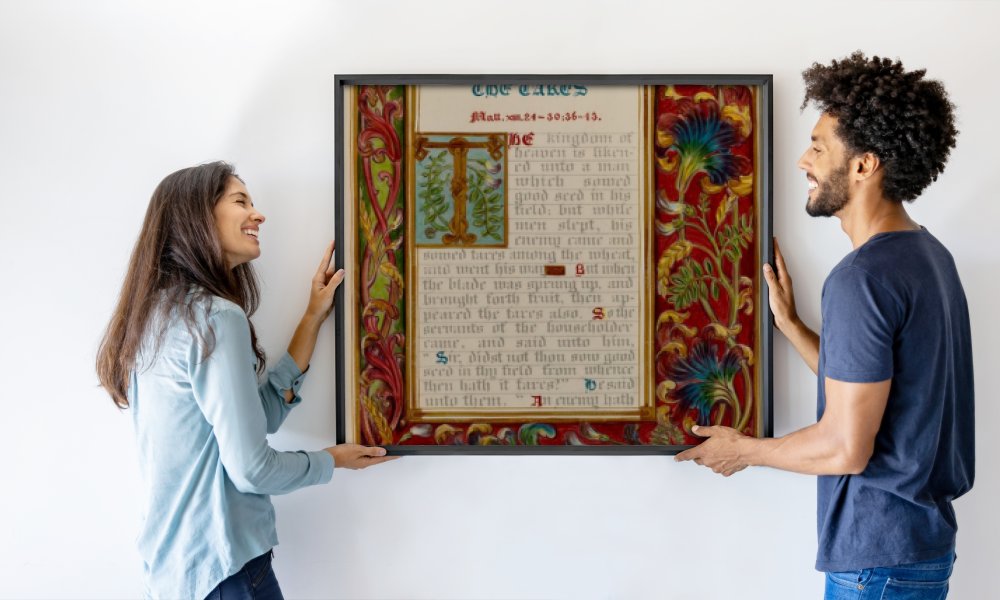 THE TARES
Matt. xiii. 24-30; 36-43.
THE kingdom of
heaven is liken-
ed unto a man
which sowed
good seed in his
field: but while
men slept, his
enemy came and
sowed tares among the wheat,
and went his way. But when
the blade was sprung up, and
brought forth fruit, then ap-
peared the tares also. So the
servants of the householder
came, and said unto him,
"Sir, didst not thou sow good
seed in thy field from whence
then hath it tares?" He said
unto them, "An enemy hath